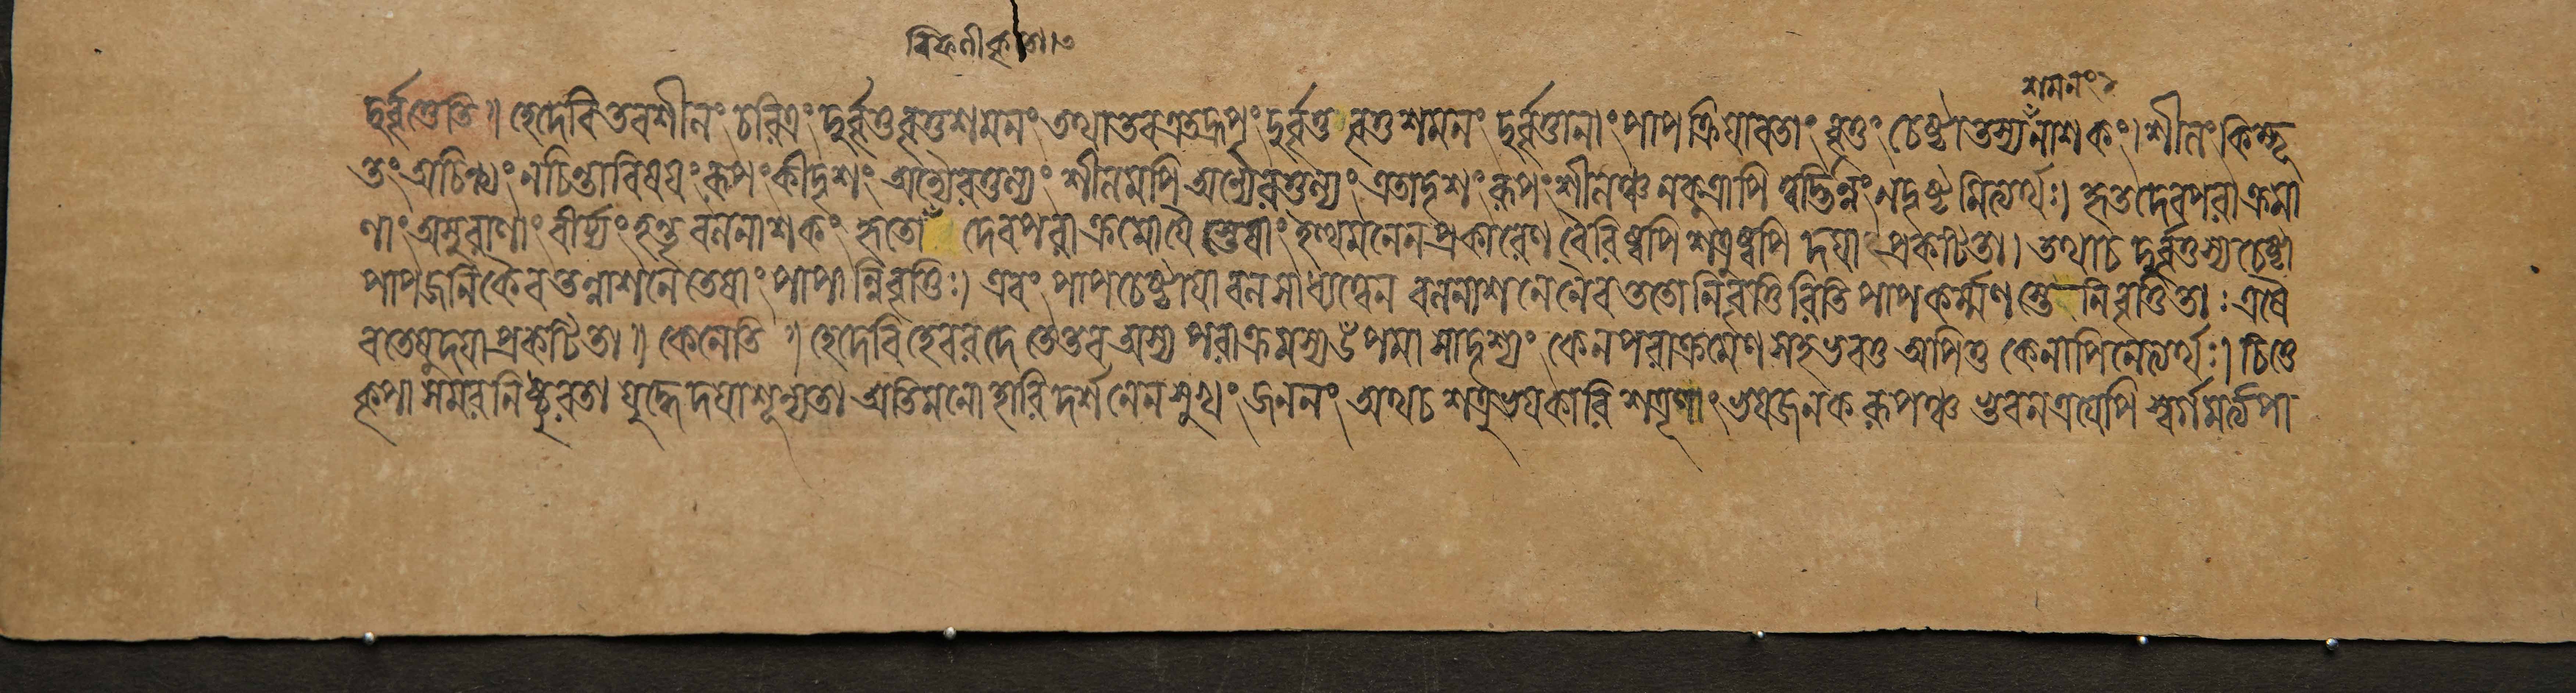 বিফলীকৃতা। ৩
শমনং ১
দুর্ব্বৃত্তেতি॥ হেদেবি তবশীলং চরিত্রং দুর্ব্বৃত্তবৃত্তশমনং তথাতবএতদ্রূপং দুর্ব্বৃত্তবৃত্তশমনং দুর্ব্বৃত্তানাং পাপক্রিযাবতাং বৃত্তং চেষ্টাতস্যনাশকং। শীলং কিম্ভূ
তং অচিন্ত্যং নচিন্তাবিষযং রূপং কীদৃশং অন্যৈরতুল্যং শীলমপি অন্যৈরতুল্যং এতাদৃশং রূপং শীলঞ্চ নকুত্রাপি ত্বদ্ভিন্নং নদৃষ্টমিত্যর্থঃ। হৃতদেবপরাক্রমা
ণাং অসুরাণাং বীর্য্যং হন্তৃ বলনাশকং হৃতো দেবপরাক্রমোযৈ স্তেষাং ইত্থমনেনপ্রকারেণ বৈরিষ্বপি শত্রুষ্বপি দযা প্রকটিতা। তথাচ দুর্ব্বৃত্তস্যচেষ্টা
পাপজনিকৈব তন্নাশনে তেষাং পাপান্নিবৃত্তিঃ। এবং পাপচেষ্টাযাবলসাধ্যত্বেন বলনাশনেনৈব ততোনিবৃত্তিরিতি পাপকর্ম্মণস্তে নিবর্ত্তিতাঃ এষৈ
বতেষুদযাপ্রকটিতা॥ কেনেতি॥ হেদেবি হেবরদে তেতব অস্য পরাক্রমস্যউপমা সাদৃশ্যং কেনপরাক্রমেণ সহভবতু অপিতু কেনাপিনেত্যর্থঃ। চিত্তে
কৃপা সমরনিষ্ঠুরতা যুদ্ধেদযাশূন্যতা অতিমনোহারি দর্শনেনসুখং জননং অথচ শত্রুভযকারি শত্রূণাং ভযজনক রূপঞ্চ ভুবনত্রযেপি স্বর্গমর্ত্যপা